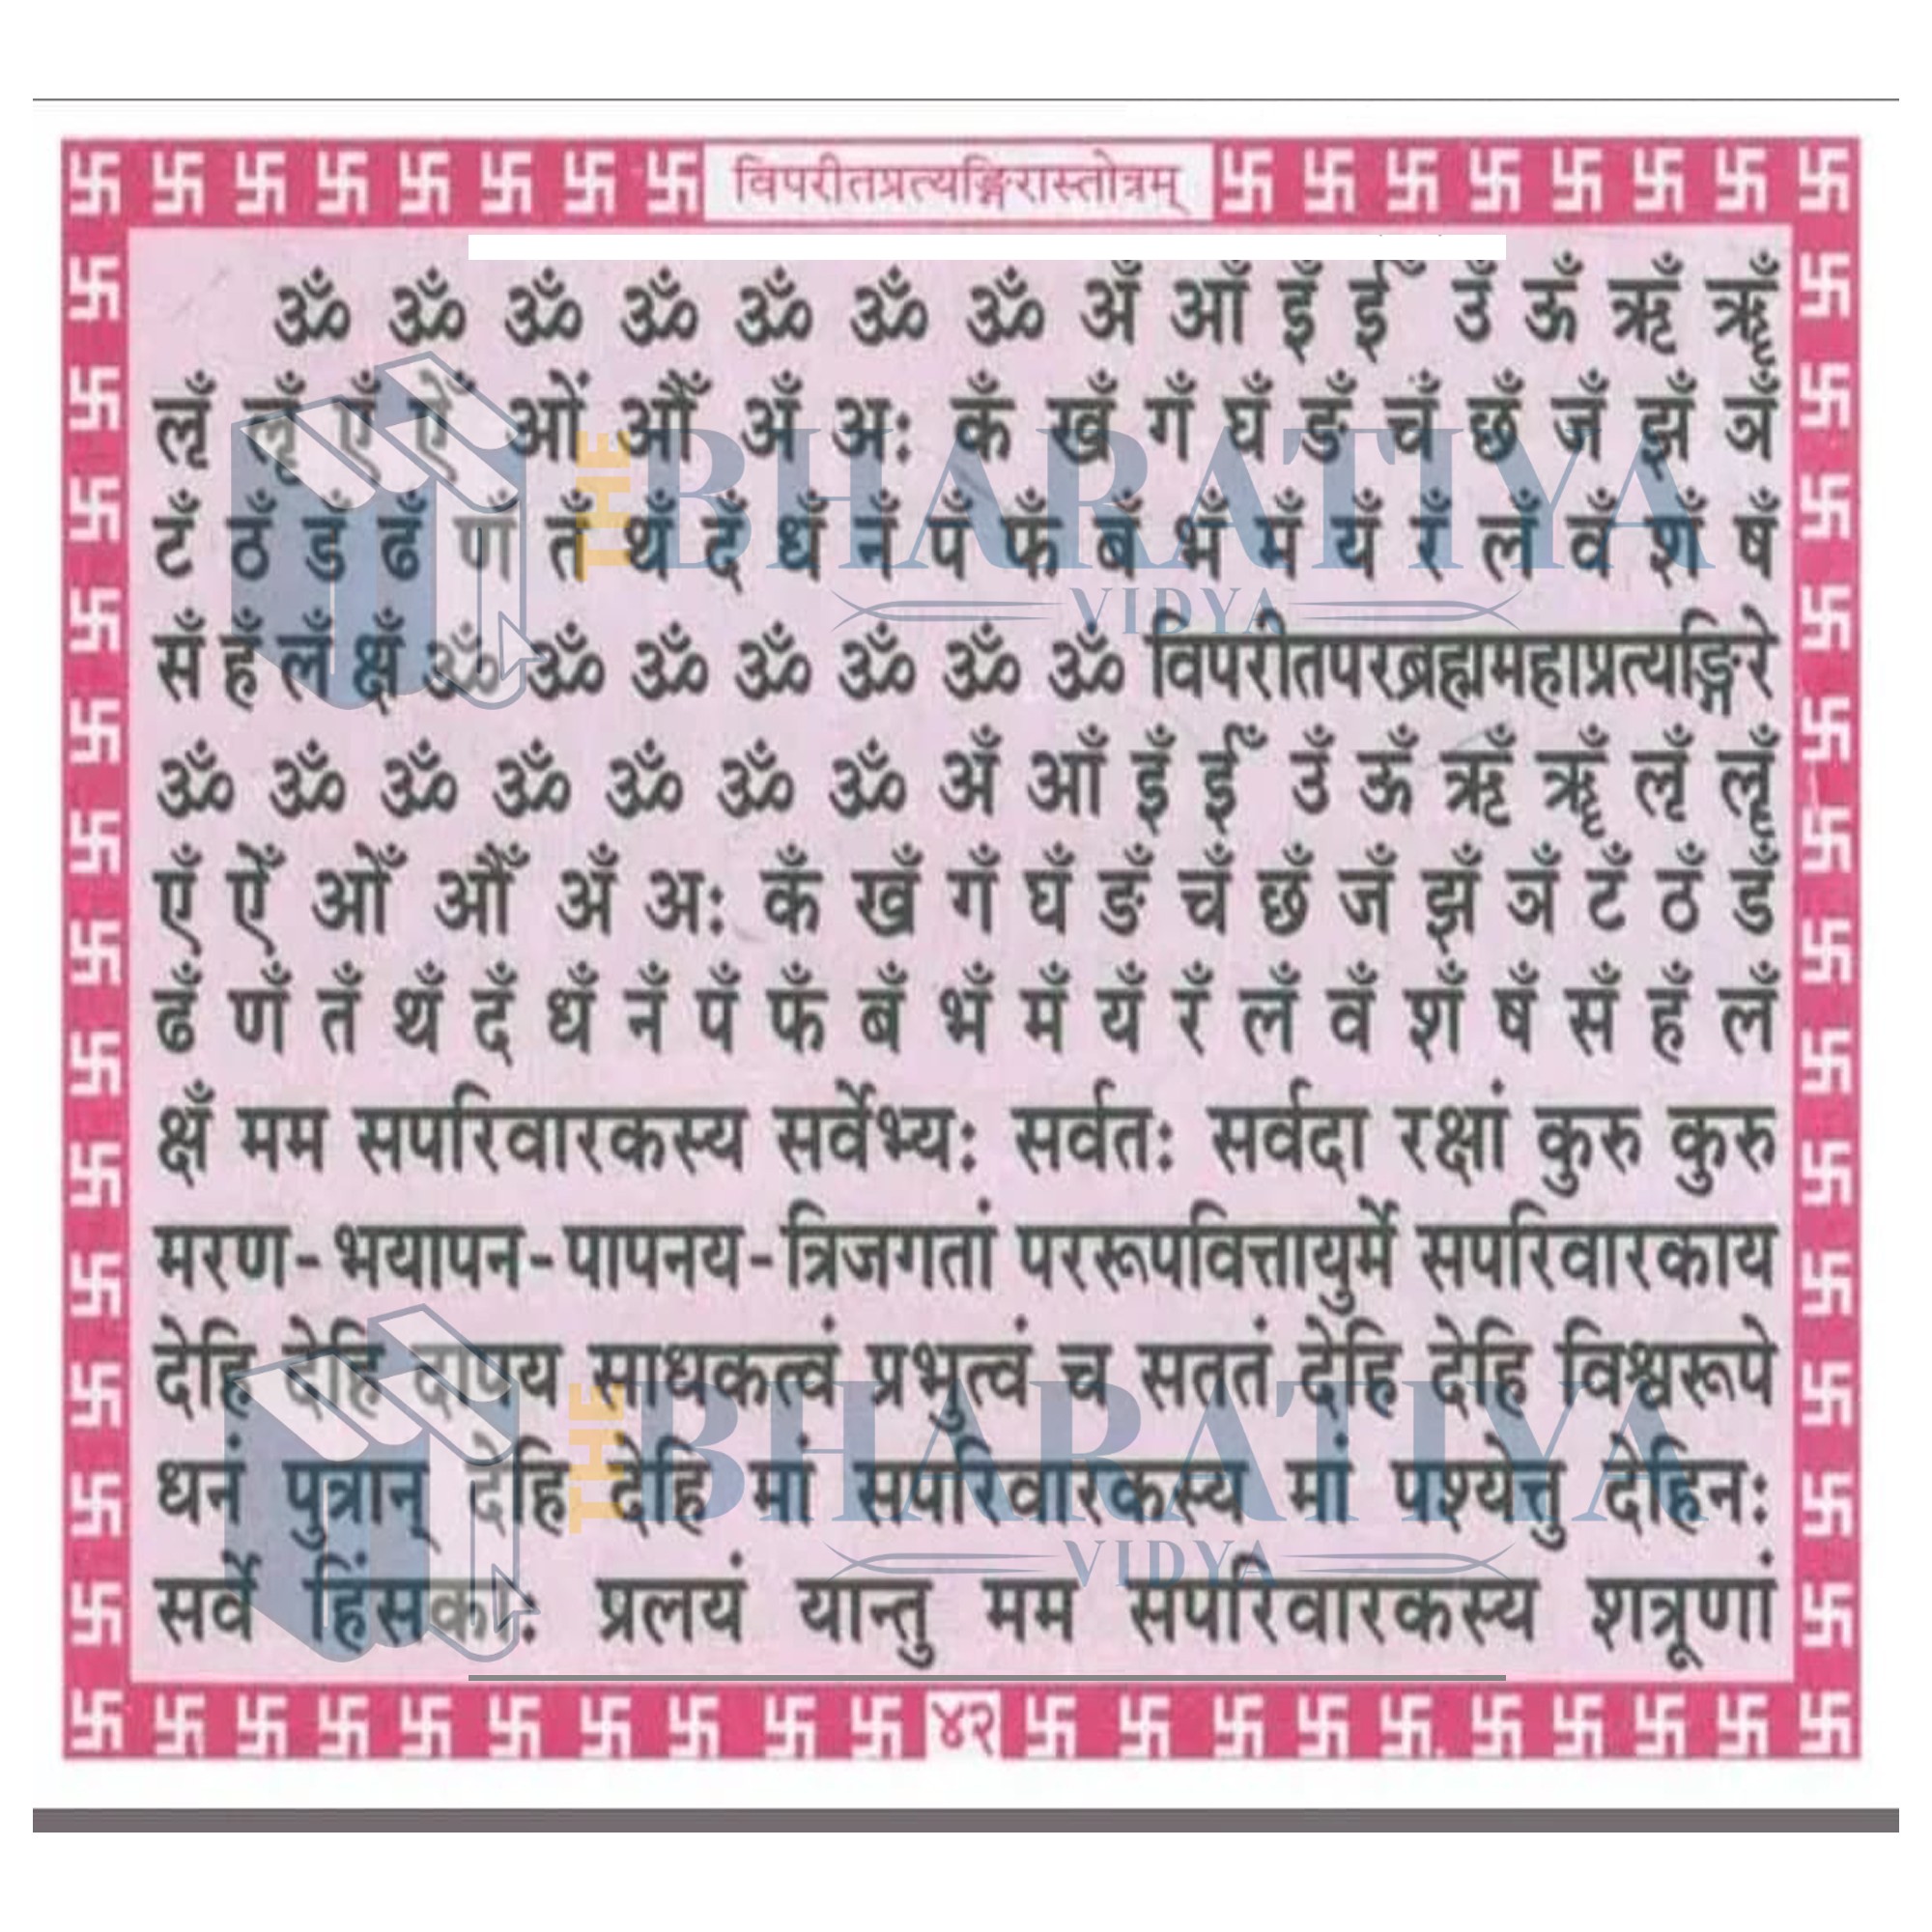 विपरीतप्रत्यङ्गिरास्तोत्रम्
ॐ ॐ ॐ ॐ ॐ ॐ ॐ अँ आँ इँ ईँ उँ ऊँ ऋँ ॠँ
लृँ लॄँ एँ ऐँ ओं औँ अँ अः कँ खँ गँ घँ ङँ चं छँ जँ झँ ञँ
टँ ठँ डँ ढँ णँ तँ थँ दँ धँ नँ पँ फँ बँ भँ मँ यँ रँ लँ वँ शँ षँ
सँ हँ लँ क्षँ ॐ ॐ ॐ ॐ ॐ ॐ ॐ विपरीतपरब्रह्ममहाप्रत्यङ्गिरे
ॐ ॐ ॐ ॐ ॐ ॐ ॐ अँ आँ इँ ईँ उँ ऊँ ऋँ ॠँ लृँ लॄँ
एँ ऐँ ओँ औँ अँ अः कँ खँ गँ घँ ङँ चँ छँ जँ झँ ञँ टँ ठँ डँ
ढँ णँ तँ थँ दँ धँ नँ पँ फँ बँ भँ मँ यँ रँ लँ वँ शँ षँ सँ हँ लँ
क्षँ मम सपरिवारकस्य सर्वेभ्यः सर्वतः सर्वदा रक्षां कुरु कुरु
मरण-भयापन-पापनय-त्रिजगतां पररूपवित्तायुर्मे सपरिवारकाय
देहि देहि दापय साधकत्वं प्रभुत्वं च सततं देहि देहि विश्वरूपे
धनं पुत्रान् देहि देहि मां सपरिवारकस्य मां पश्येत्तु देहिनः
सर्वे हिंसकाः प्रलयं यान्तु मम सपरिवारकस्य शत्रूणां
४२
THE BHARATIYA VIDYA
THE BHARATIYA VIDYA